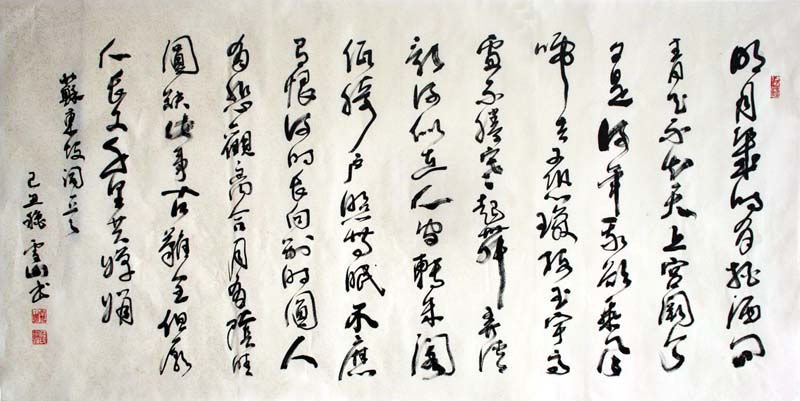 明月幾時有把酒問
青天不知天上宮闕今
夕是何年我欲乘風
歸去又恐瓊樓玉宇高
處不勝寒起舞弄清
影何似在人間轉朱閣
低綺户照無眠不應
有恨何時長向別時圓人
有悲歡離合月有陰晴
圓缺此事古難全但願
人長久千里共嬋娟
蘇東坡詞
己丑 雲山书